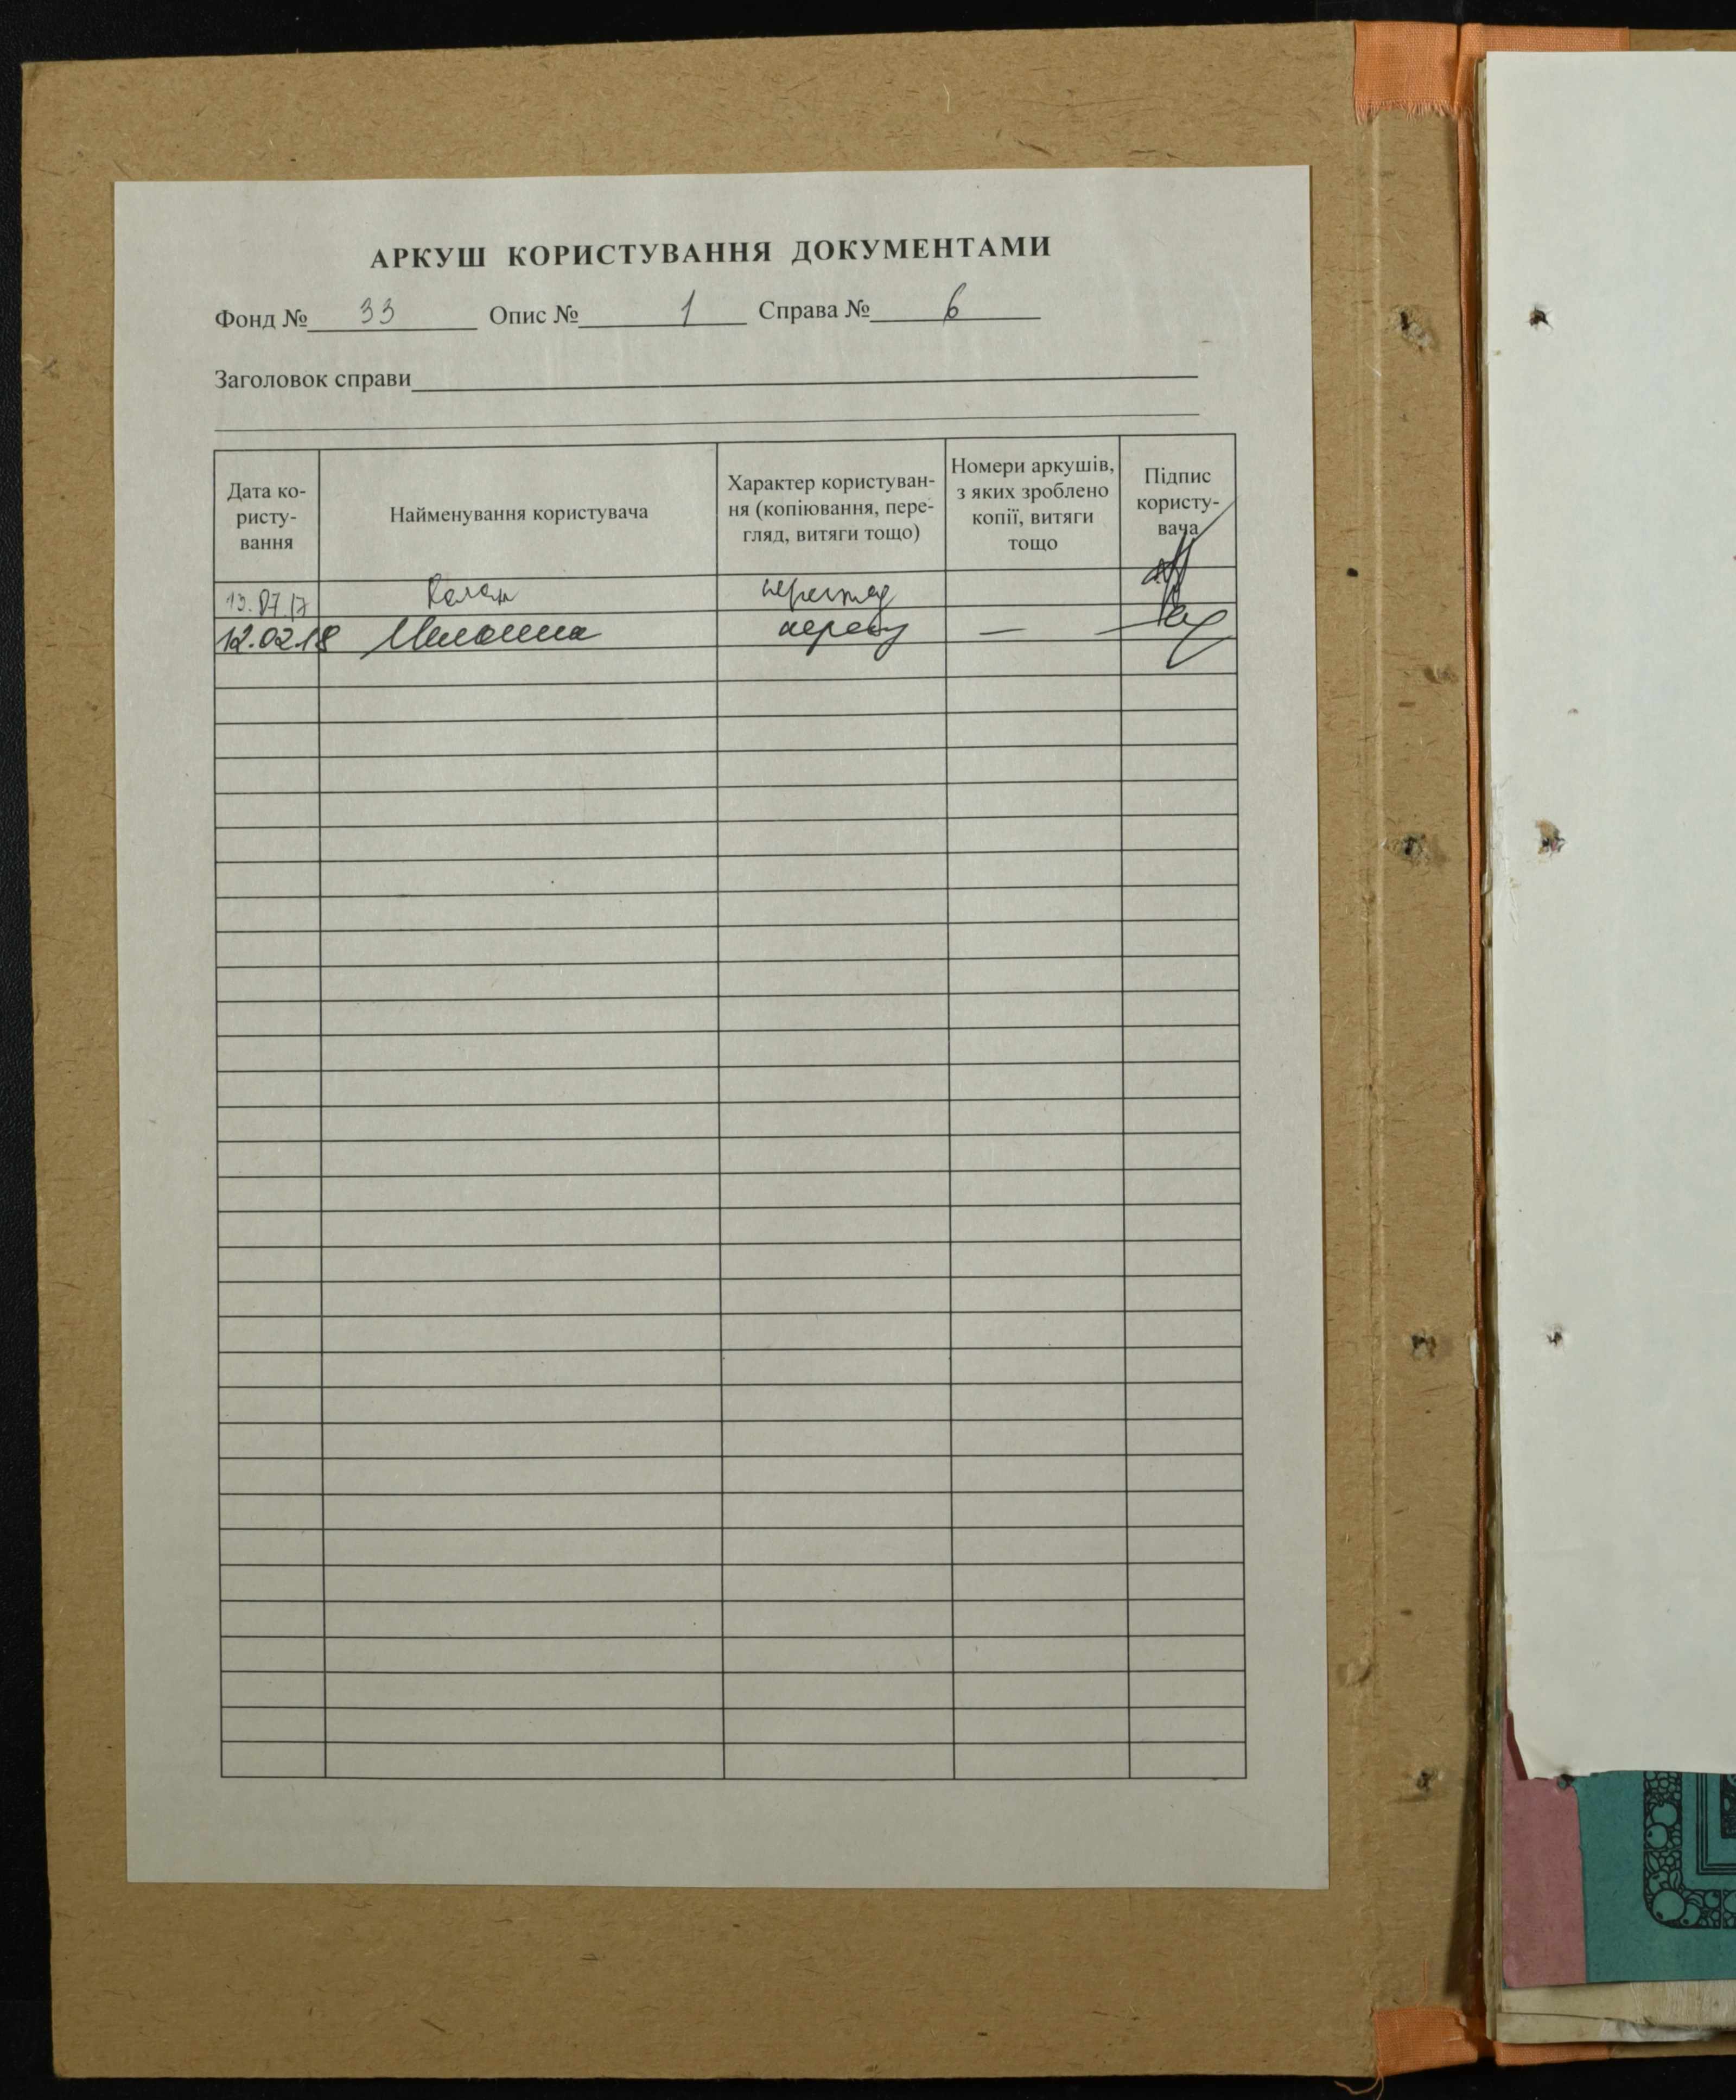 АРКУШ КОРИСТУВАННЯ ДОКУМЕНТАМИ
Фонд № 33 Опис № 1 Справа № 6
Заголовок справи
Дата ко-
ристу-
вання
Найменування користувача
Характер користуван-
ня (копіювання, пере-
гляд, витяги тощо)
Номери аркушів,
з яких зроблено
копії, витяги
тощо
Підпис
користу-
вача
13.07.17 перегляд
12.02.18 —